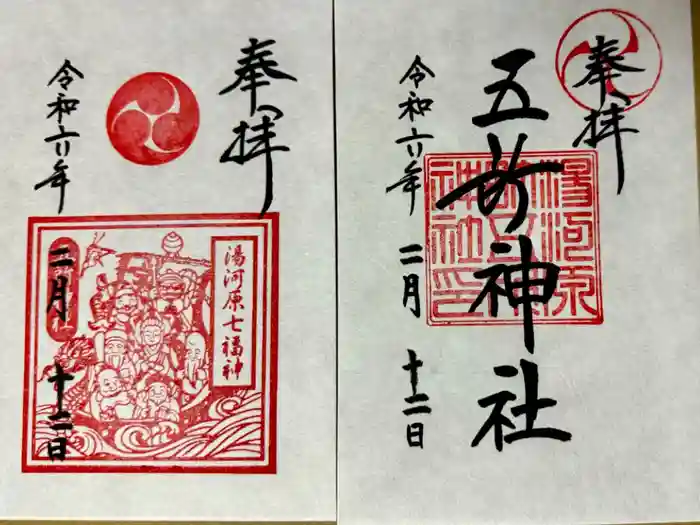 奉拝
五所神社
湯河原五所神社印
令和六年 二月 十二日
奉拝
湯河原七福神
令和六年
二月 十二日